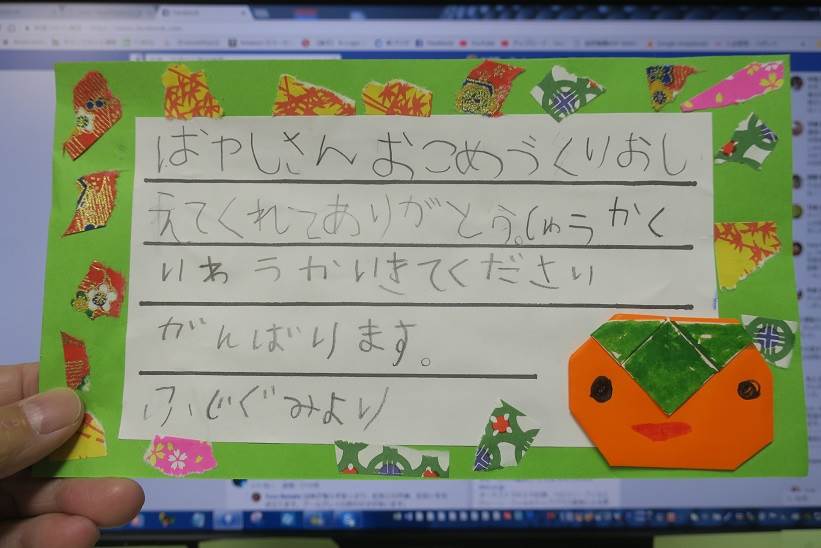 ばやしさん おこめづくりおし
えてくれてありがとう。しゅうかく
いわうかいきてください
がんばります。
ふじぐみより